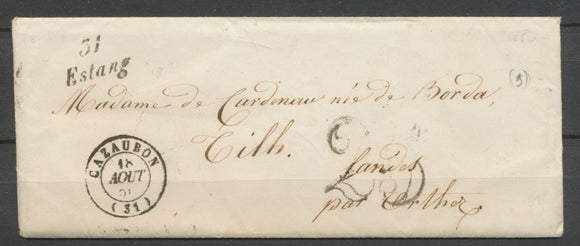 31
Estang
Madame de Cardenau née de Borda,
Tilh.
Landes
par Orthez
CAZAUBON
18
AOUT
51
(31)
25
(3)